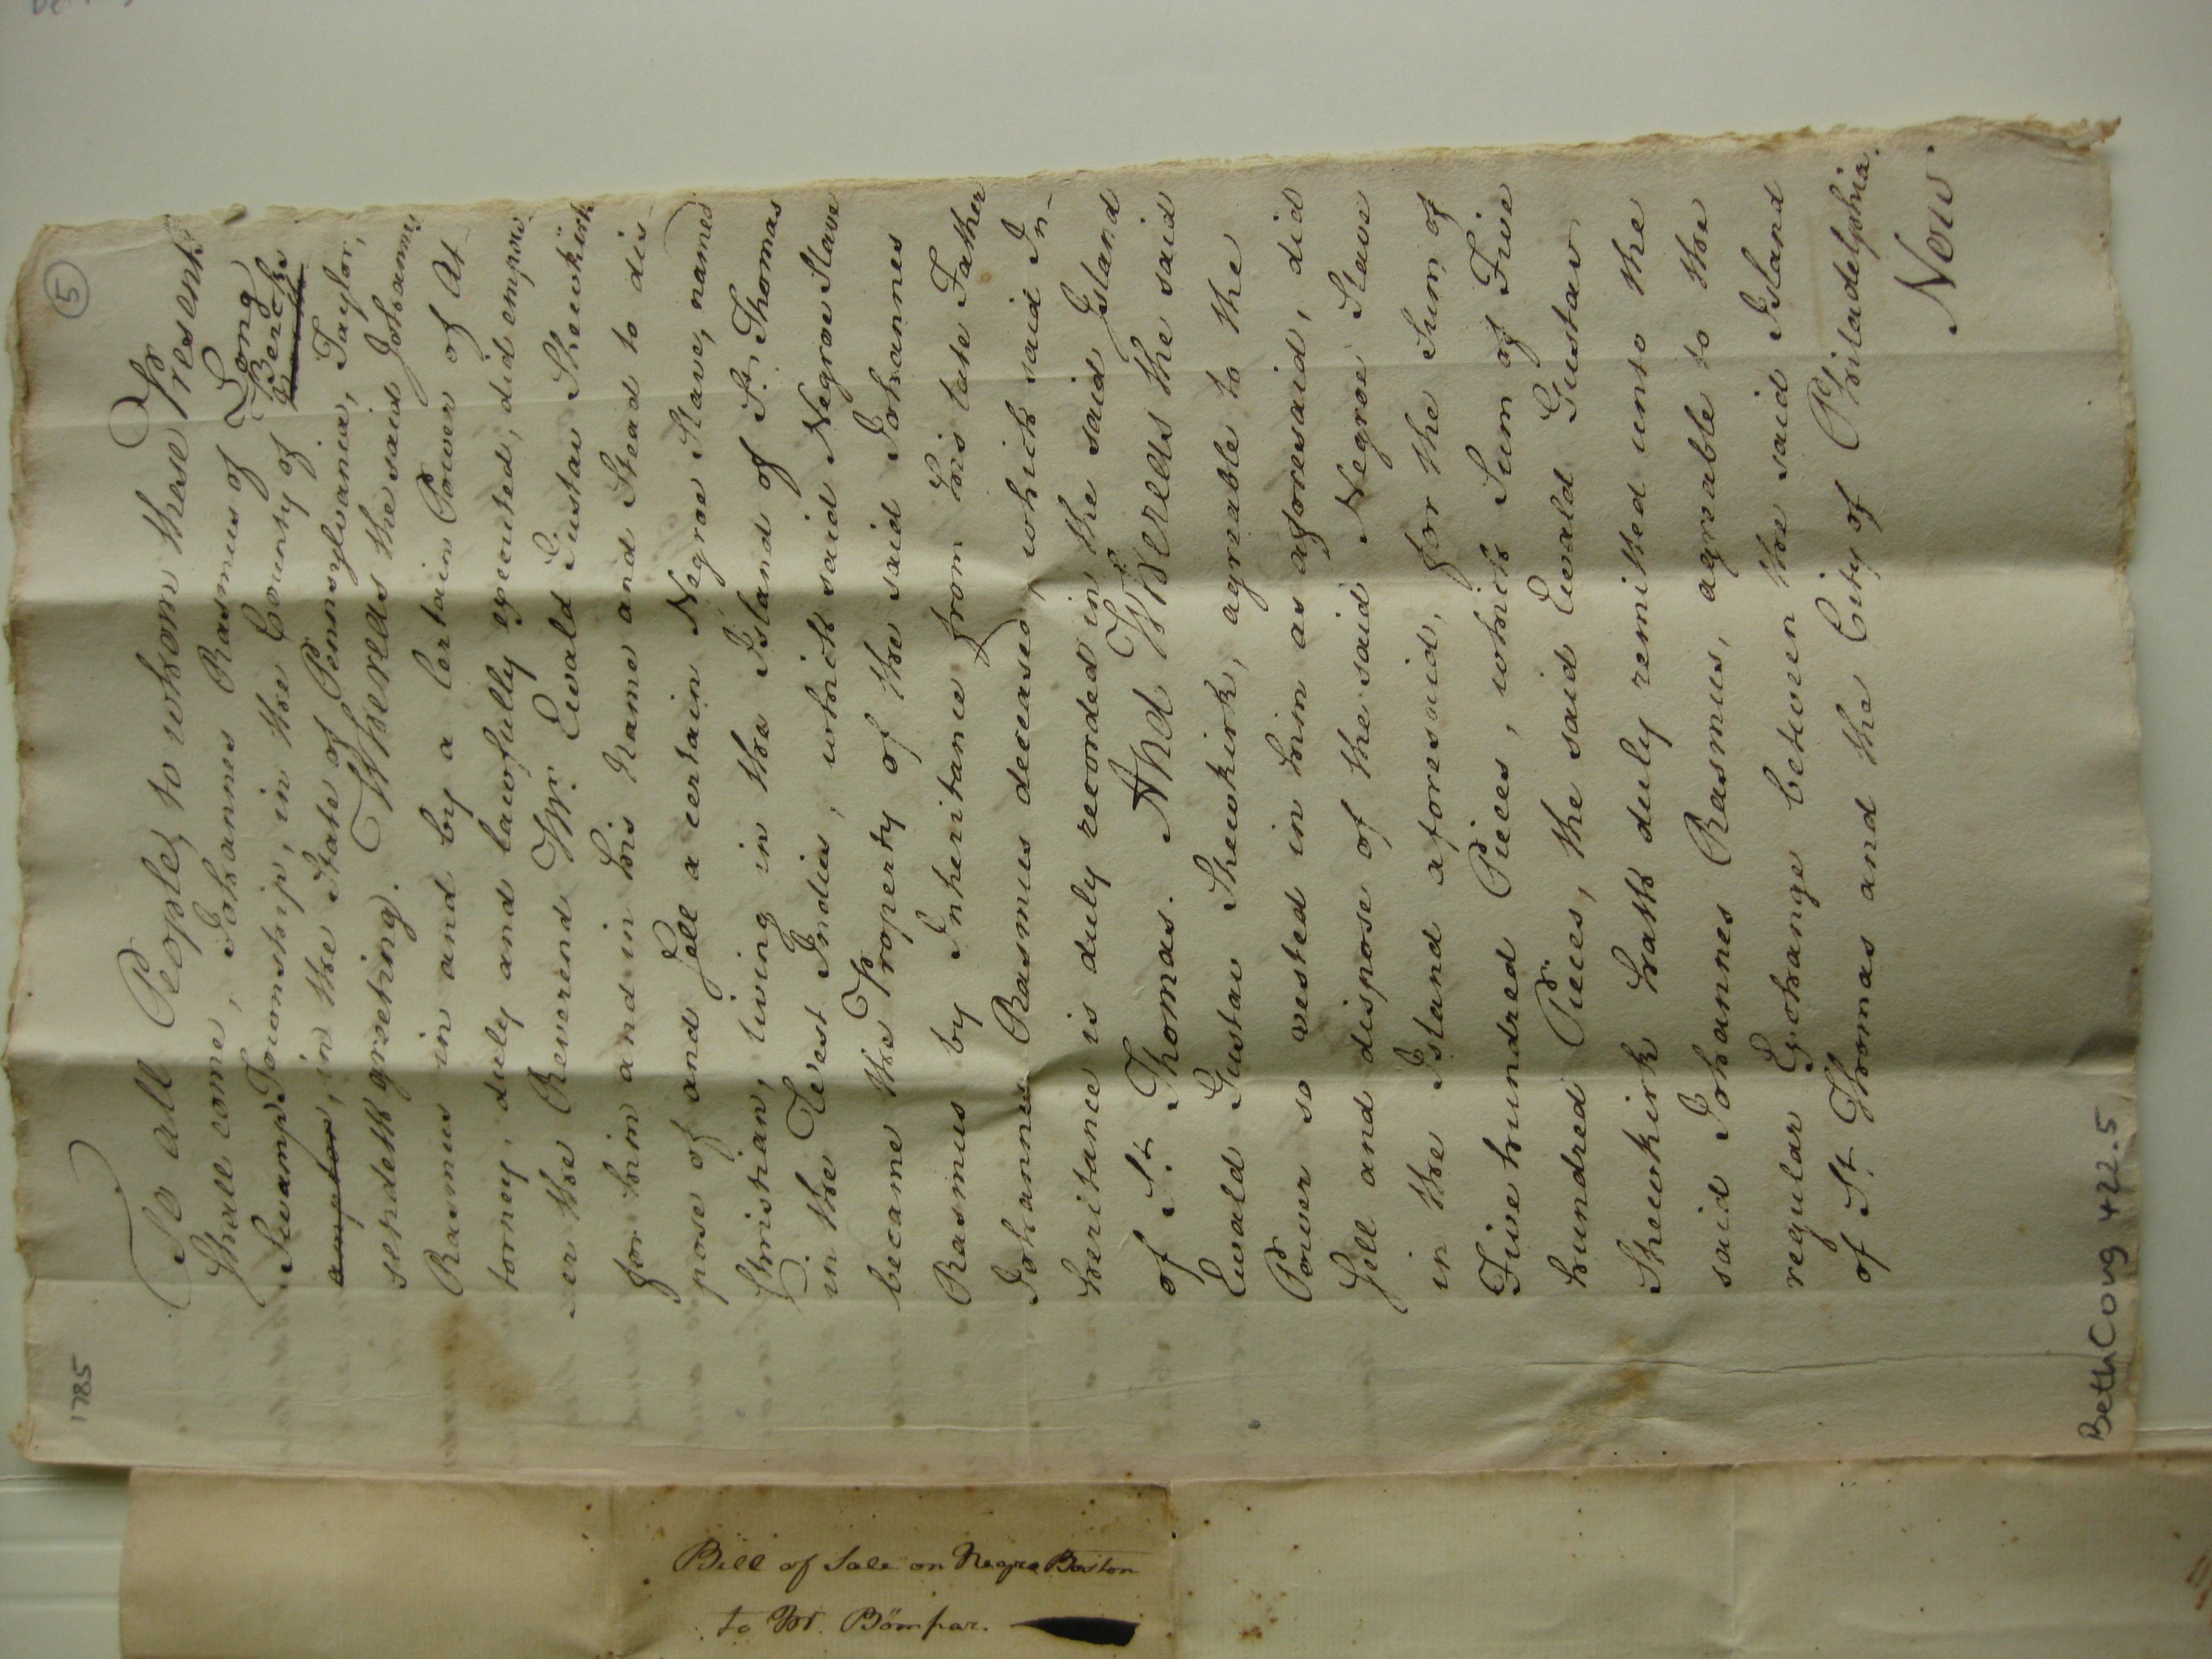 1785
5
To all People, to whom these Presents
Shall come, Johannes Rasmus of Long
Swamp Township, in the County of Bercks
ampton, in the State of Pennsylvania, Taylor,
sendeth greeting. Whereas the said Johannes
Rasmus in and by a certain Power of At-
torney, duly and lawfully executed, did empow-
er the Reverend Mr. Ewald Gustav Shewkirk
for him and in his Name and Stead to dis-
pose of and Sell a certain Negroe Slave, named
Christian, living in the Island of St. Thomas
in the West Indies, which said Negroe Slave
became the Property of the said Johannes
Rasmus by Inheritance from his late Father
Johannes Rasmus deceased, which said In-
heritance is duly recorded in the said Island
of St. Thomas. And Whereas the said
Ewald Gustav Shewkirk, agreable to the
Power so vested in him as aforesaid, did
Sell and dispose of the said Negroe Slave
in the Island aforesaid, for the Sum of
Five hundred Pieces, which Sum of Five
hundred Pieces, the said Ewald Gustav
Shewkirk hath duly remitted unto the
said Johannes Rasmus, agreable to the
regular Exchange between the said Island
of St. Thomas and the City of Philadelphia.
Now
BethCong 422.5
Bill of Sale on Negro Boston
to Mr. Bömpar.